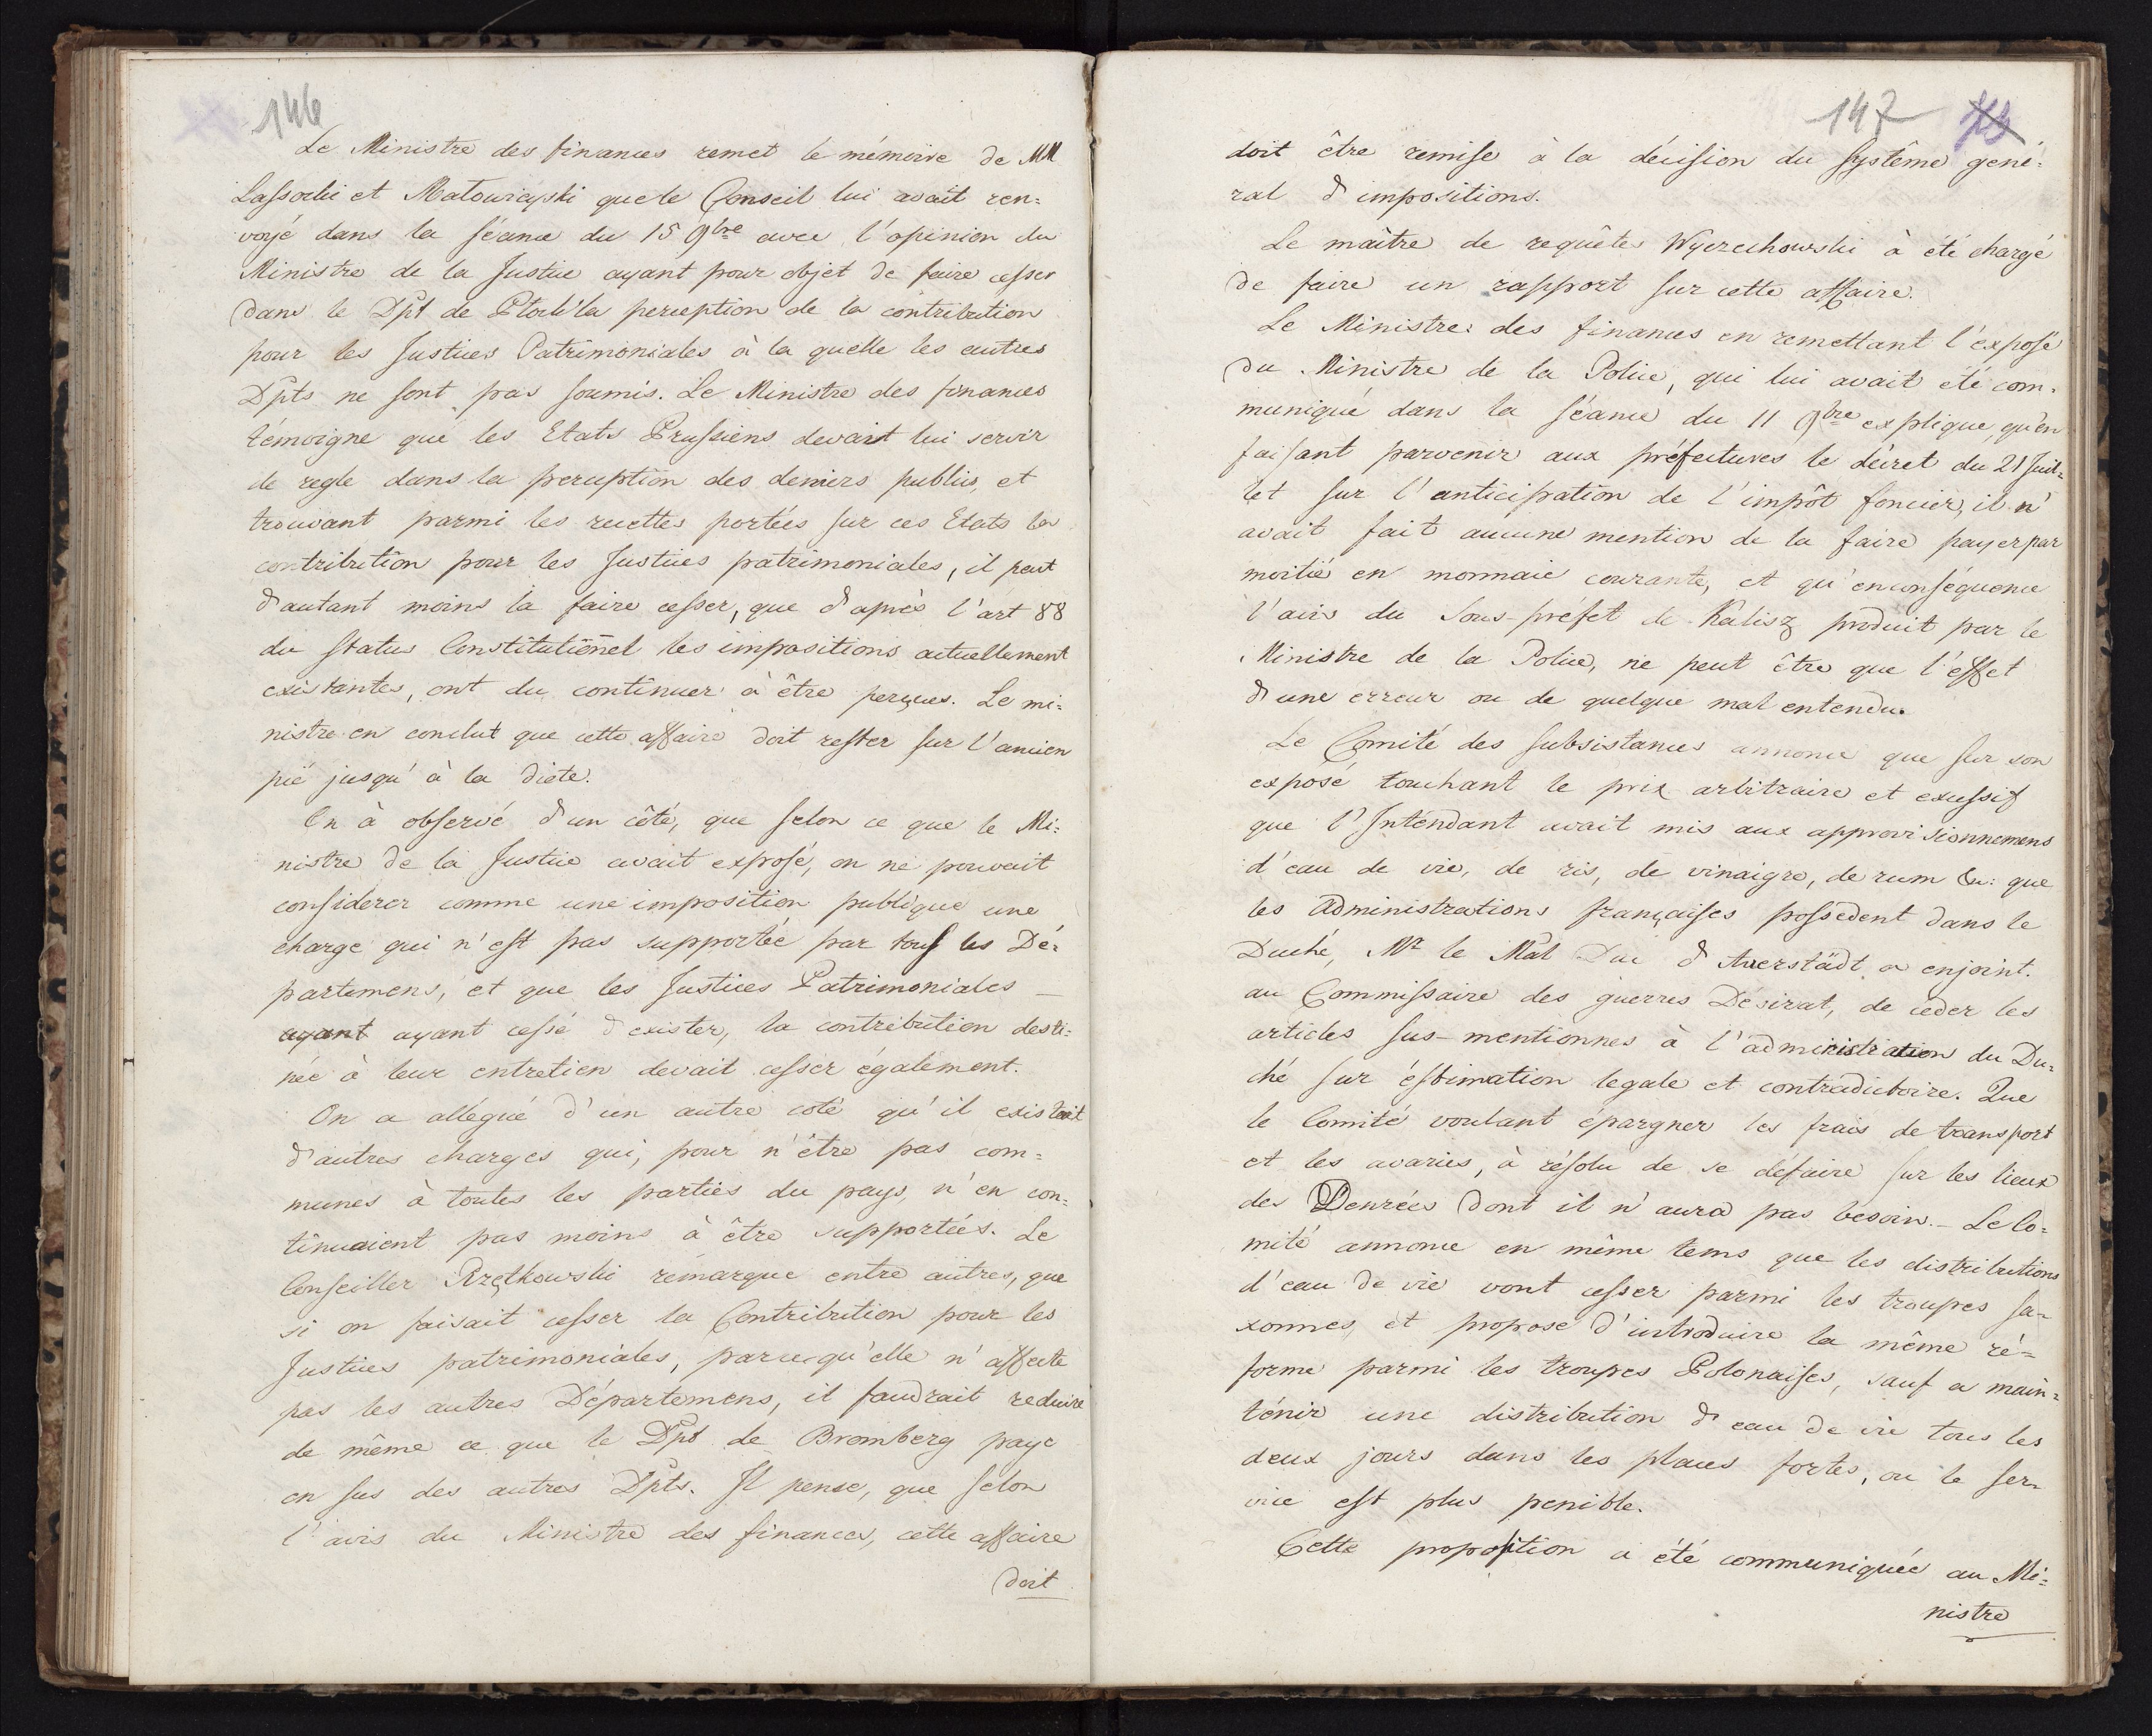 146
Le Ministre des finances remet le mémoire de MM
Lassocki et Matowieyski que le Conseil lui avait ren=
voyé dans la séance du 15 9bre avec l'opinion du
Ministre de la Justice ayant pour objet de faire cesser
dans le Dpt de Płock la perception de la contribution
pour les Justices Patrimoniales à la quelle les autres
Dpts ne sont pas soumis. Le Ministre des finances
témoigne que les Etats Prussiens devait lui servir
de regle dans la perception des deniers publics, et
trouvant parmi les recettes portées sur ces Etats la
contribution pour les Justices patrimoniales, il peut
d'autant moins la faire cesser, que d'après l'art 88
du Status Constitutionel les impositions actuellement
existantes, ont du continuer à être perçues. Le mi=
nistre en conclut que cette affaire doit rester sur l'ancien
pié jusqu'à la diete.
On à observé d'un côté, que selon ce que le Mi=
nistre de la Justice avait exposé, on ne pouvait
considerer comme une imposition publique une
charge qui n'est pas supportée par tous les Dé=
partemens, et que les Justices Patrimoniales —
ayant ayant cessé d'exister, la contribution desti=
née à leur entretien devait cesser également.
On a allégué d'un autre coté qu'il existait
d'autres charges qui, pour n'être pas com=
munes à toutes les parties du pays, n'en con=
tinuaient pas moins à être supportées. Le
Conseiller Rzętkowski remarque entre autres, que
si on faisait cesser la Contribution pour les
Justices patrimoniales, parcequ'elle n'affecte
pas les autres Départemens, il faudrait reduire
de même ce que le Dpt de Bromberg paye
en sus des autres Dpts. Il pense, que selon
l'avis du Ministre des finances, cette affaire
doit
147
doit être remise à la décision du système gené=
ral d'impositions.
Le maître de requêtes Wyczechowski à été chargé
de faire un rapport sur cette affaire.
Le Ministre des finances en remettant l'exposé
du Ministre de la Police, qui lui avait été com=
muniqué dans la séance du 11 9bre explique, qu'en
faisant parvenir aux préfectures le décret du 21 Juil=
let sur l'anticipation de l'impôt foncier, il n'
avait fait aucune mention de la faire payer par
moitié en monnaie courante, et qu'enconséquence
l'avis du Sous-préfet de Kalisz produit par le
Ministre de la Police, ne peut être que l'effet
d'une erreur ou de quelque mal entendu.
Le Comité des subsistances annonce que sur son
exposé touchant le prix arbitraire et excessif
que l'Intendant avait mis aux approvisionnemens
d'eau de vie, de ris, de vinaigre, de rum &c: que
les Administrations françaises possèdent dans le
Duché, Mr le Mal Duc d'Auerstädt a enjoint
au Commissaire des guerres Désirat, de céder les
articles sus-mentionnés à l'administration du Du=
ché sur éstimation legale et contradictoire. Que
le Comité voulant épargner les frais de transport
et les avaries, à résolu de se défaire sur les lieux
des Denrées dont il n'aura pas besoin. — Le Co=
mité annonce en même tems que les distributions
d'eau de vie vont cesser parmi les troupes sa=
xonnes, et propose d'introduire la même ré=
forme parmi les troupes Polonaises, sauf a main=
ténir une distribution d'eau de vie tous les
deux jours dans les places fortes, ou le ser=
vice est plus penible.
Cette proposition a été communiquée au Mi=
nistre